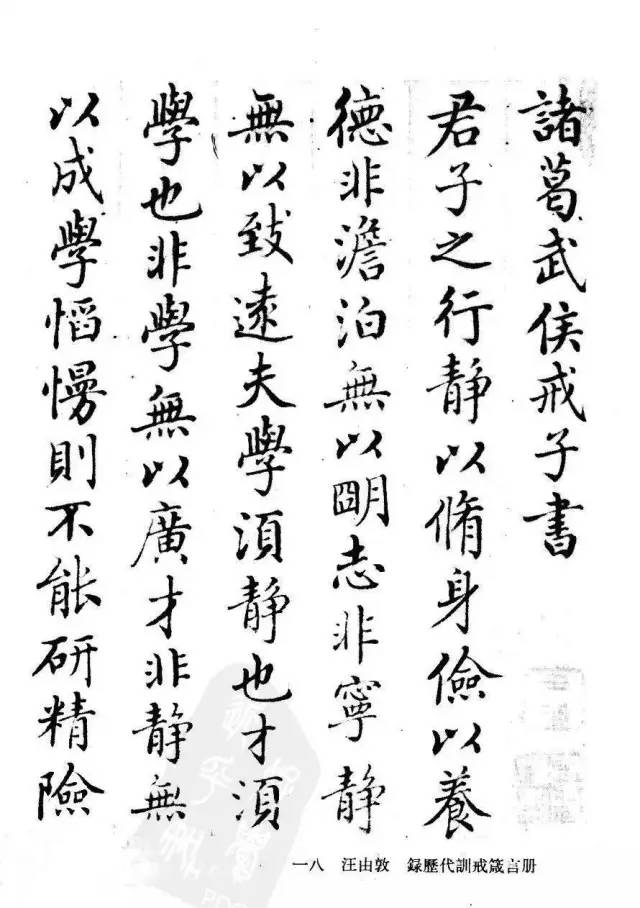 諸葛武侯戒子書
君子之行静以脩身儉以養
德非澹泊無以朙志非寧静
無以致遠夫學須静也才須
學也非學無以廣才非静無
以成學慆慢則不能研精險
一八　汪由敦　録歷代訓戒箴言册